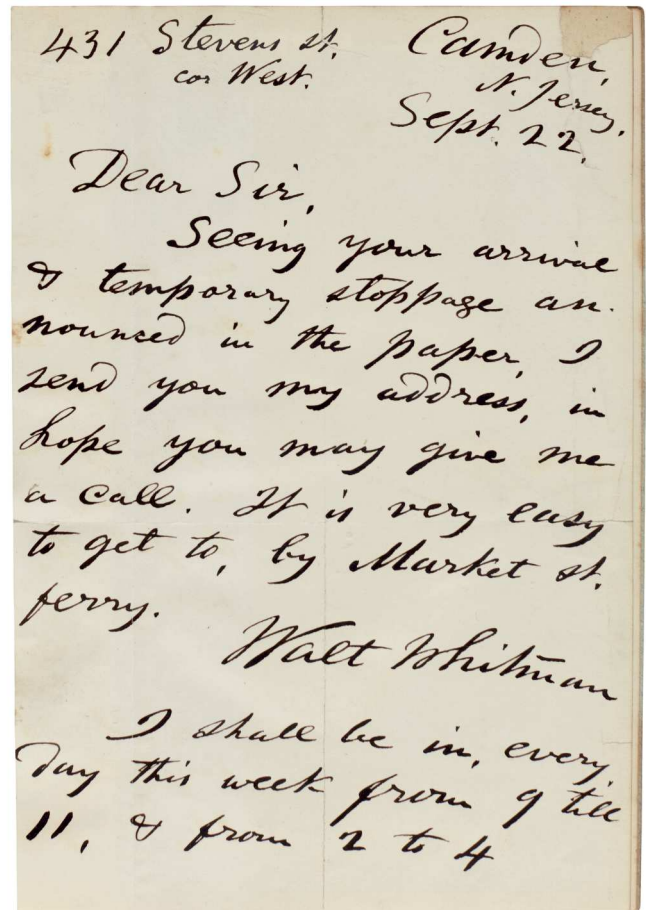 431 Stevens st. Camden,
cor West. N. Jersey.
Sept. 22.
Dear Sir,
Seeing your arrival
& temporary stoppage an-
nounced in the paper, I
send you my address, in
hope you may give me
a call. It is very easy
to get to, by Market st.
ferry.
Walt Whitman
I shall be in, every
day this week from 9 till
11, & from 2 to 4